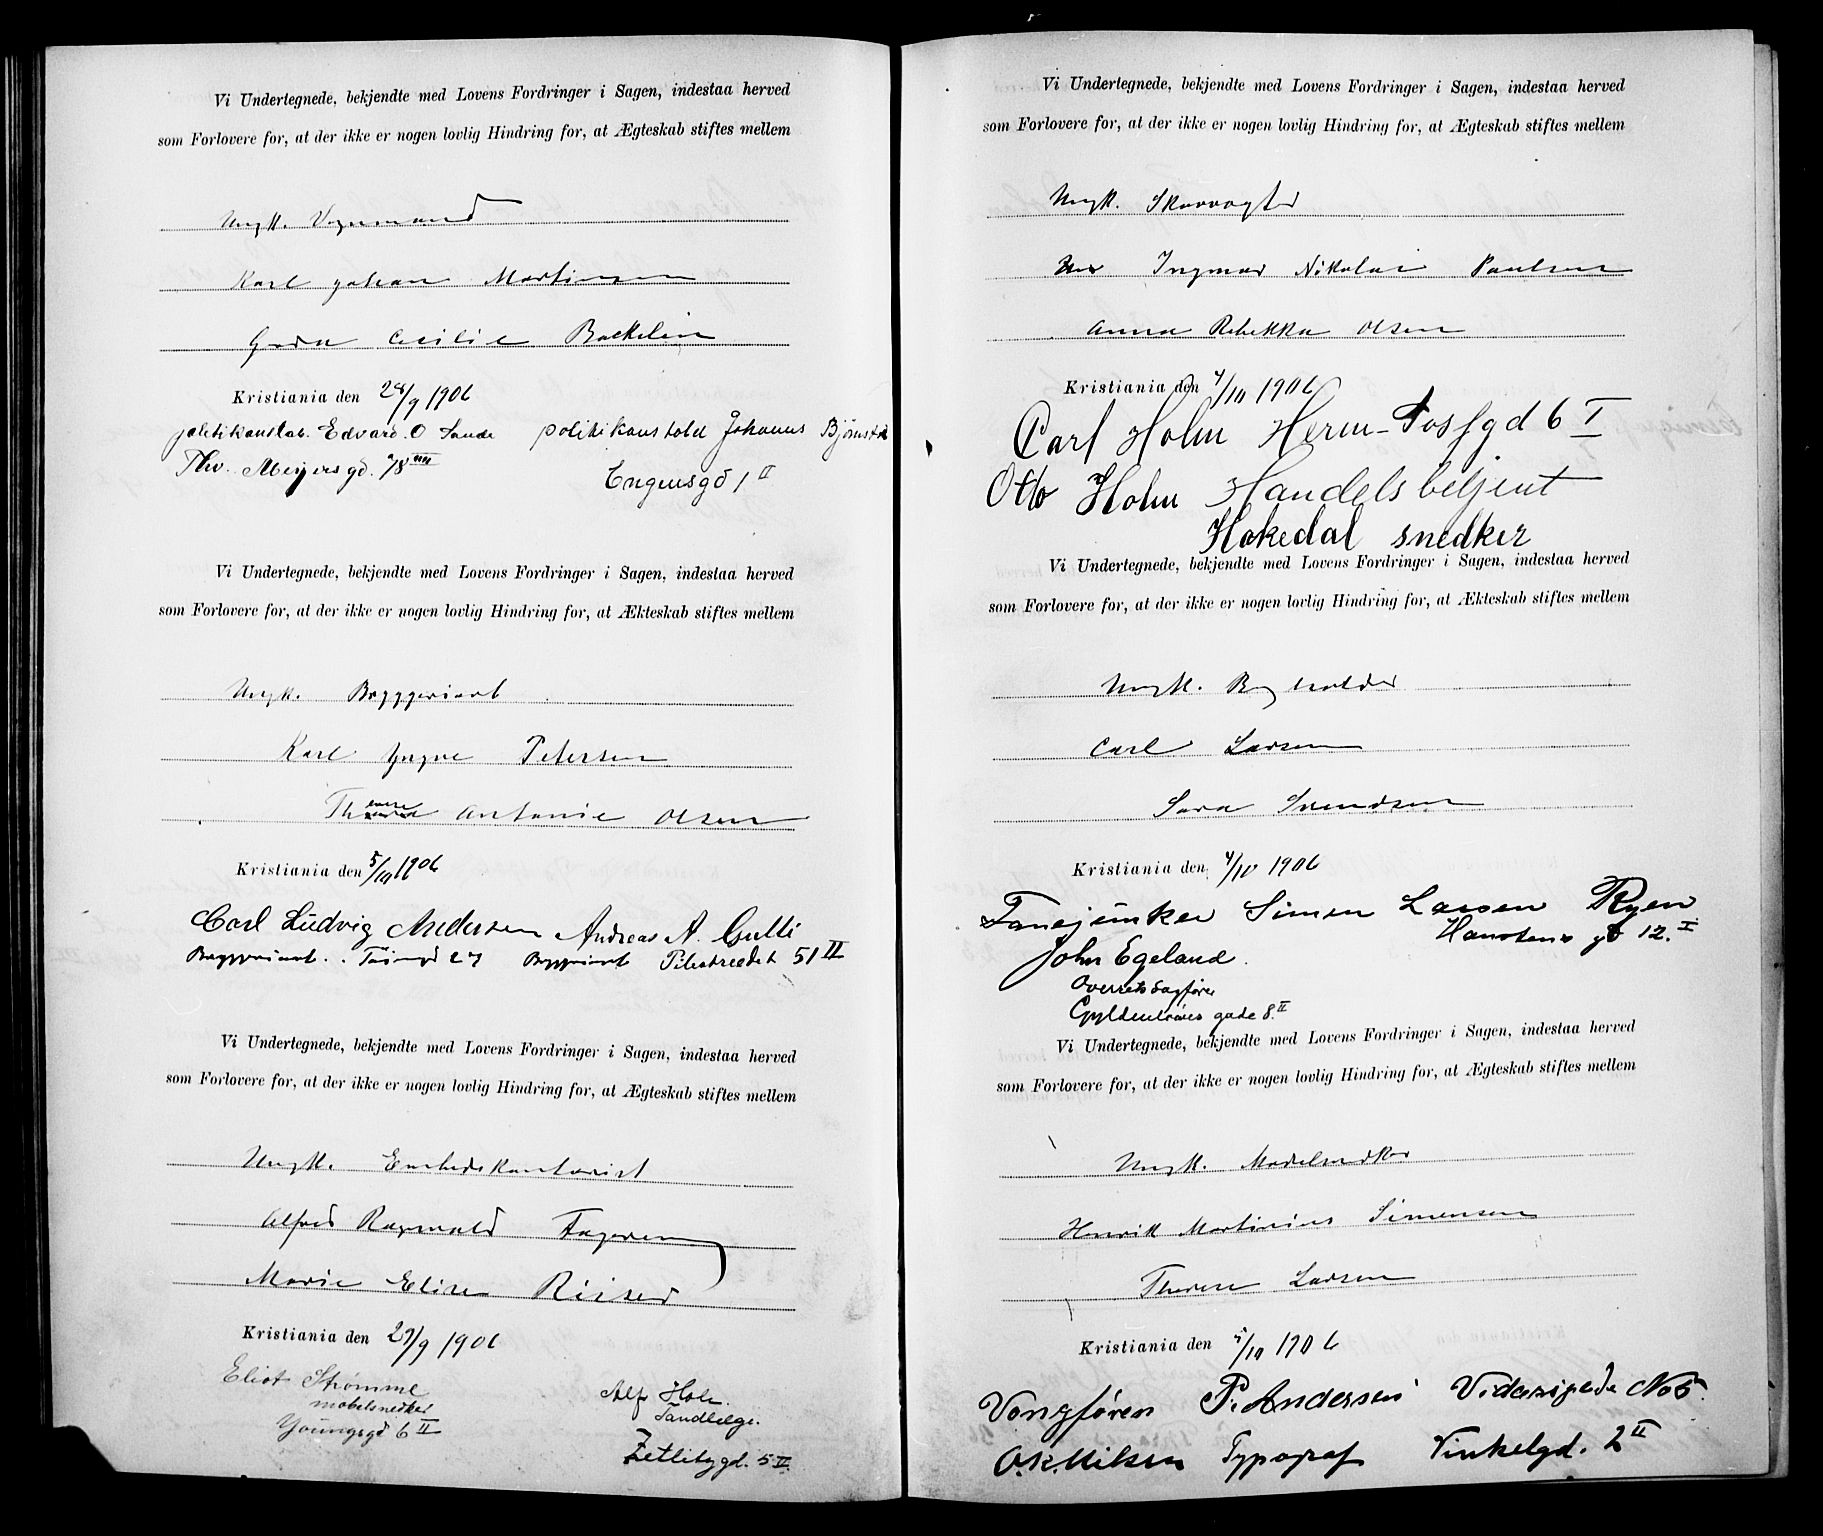 Vi Undertegnede, bekjendte med Lovens Fordringer i Sagen, indestaa herved
som Forlovere for, at der ikke er nogen lovlig Hindring for, at Ægteskab stiftes mellem
Ungk. Vognmand
Karl Johan Martinsen
Gerda Cecilie Backelin
Kristiania den 28/9 1906
politikonstab. Edvard O Sande politikonstabel Johannes Björnstad
Thv. Meyers gd. 78 IIII Engensgd 1 II
Vi Undertegnede, bekjendte med Lovens Fordringer i Sagen, indestaa herved
som Forlovere for, at der ikke er nogen lovlig Hindring for, at Ækteskab stiftes mellem
Ungk. Bryggeriarb.
Karl Yngve Petersen
Antonie Olsen
Kristiania den 5/10 1906
Carl Ludvig Andersen Andreas A. Gulli
Bryggeriarb. 27 Bryggeriarb Pilestrædet 51 II
Vi Undertegnede, bekjendte med Lovens Fordringer i Sagen, indestaa herved
som Forlovere for, at der ikke er nogen lovlig Hindring for, at Ægteskab stiftes mellem
Ungk. Embedskontorist
Alfred Ragnvald Fagereng
Marie Elise Riiser
Kristiania den 29/9 1906
Eliot Strømme Alf Hole
møbelsnedker Tandlæge.
Youngsgd 6 II Zetlitzgd. 5 II.
Vi Undertegnede, bekjendte med Lovens Fordringer i Sagen, indestaa herved
som Forlovere for, at der ikke er nogen lovlig Hindring for, at Ægteskab stiftes mellem
Ungk. Skovvogter
Ingmar Nikolai Paulsen
Anna Rebekka Olsen
Kristiania den 4/10 1906
Carl Holm Herm-Fossgd 6 I
Otto Holm Handelsbetjent
Hakedal snedker
Vi Undertegnede, bekjendte med Lovens Fordringer i Sagen, indestaa herved
som Forlovere for, at der ikke er nogen lovlig Hindring for, at Ækteskab stiftes mellem
Ungk. Bogholder
Carl Larsen
Sara Svendsen
Kristiania den 4/10 1906
Simen Larsen Ryen
Hanstens gt 12. I
John Egeland.
Overretssagfører
Gyldenløves gade 8. II
Vi Undertegnede, bekjendte med Lovens Fordringer i Sagen, indestaa herved
som Forlovere for, at der ikke er nogen lovlig Hindring for, at Ægteskab stiftes mellem
Ungk. Modelsnedker
Henrik Martinius Simensen
Therese Larsen
Kristiania den 5/10 1906
Vongføren P. Andersen Vidarsgade No 5.
O.K. Nilsen Typograf Vinkelgd. 2 II